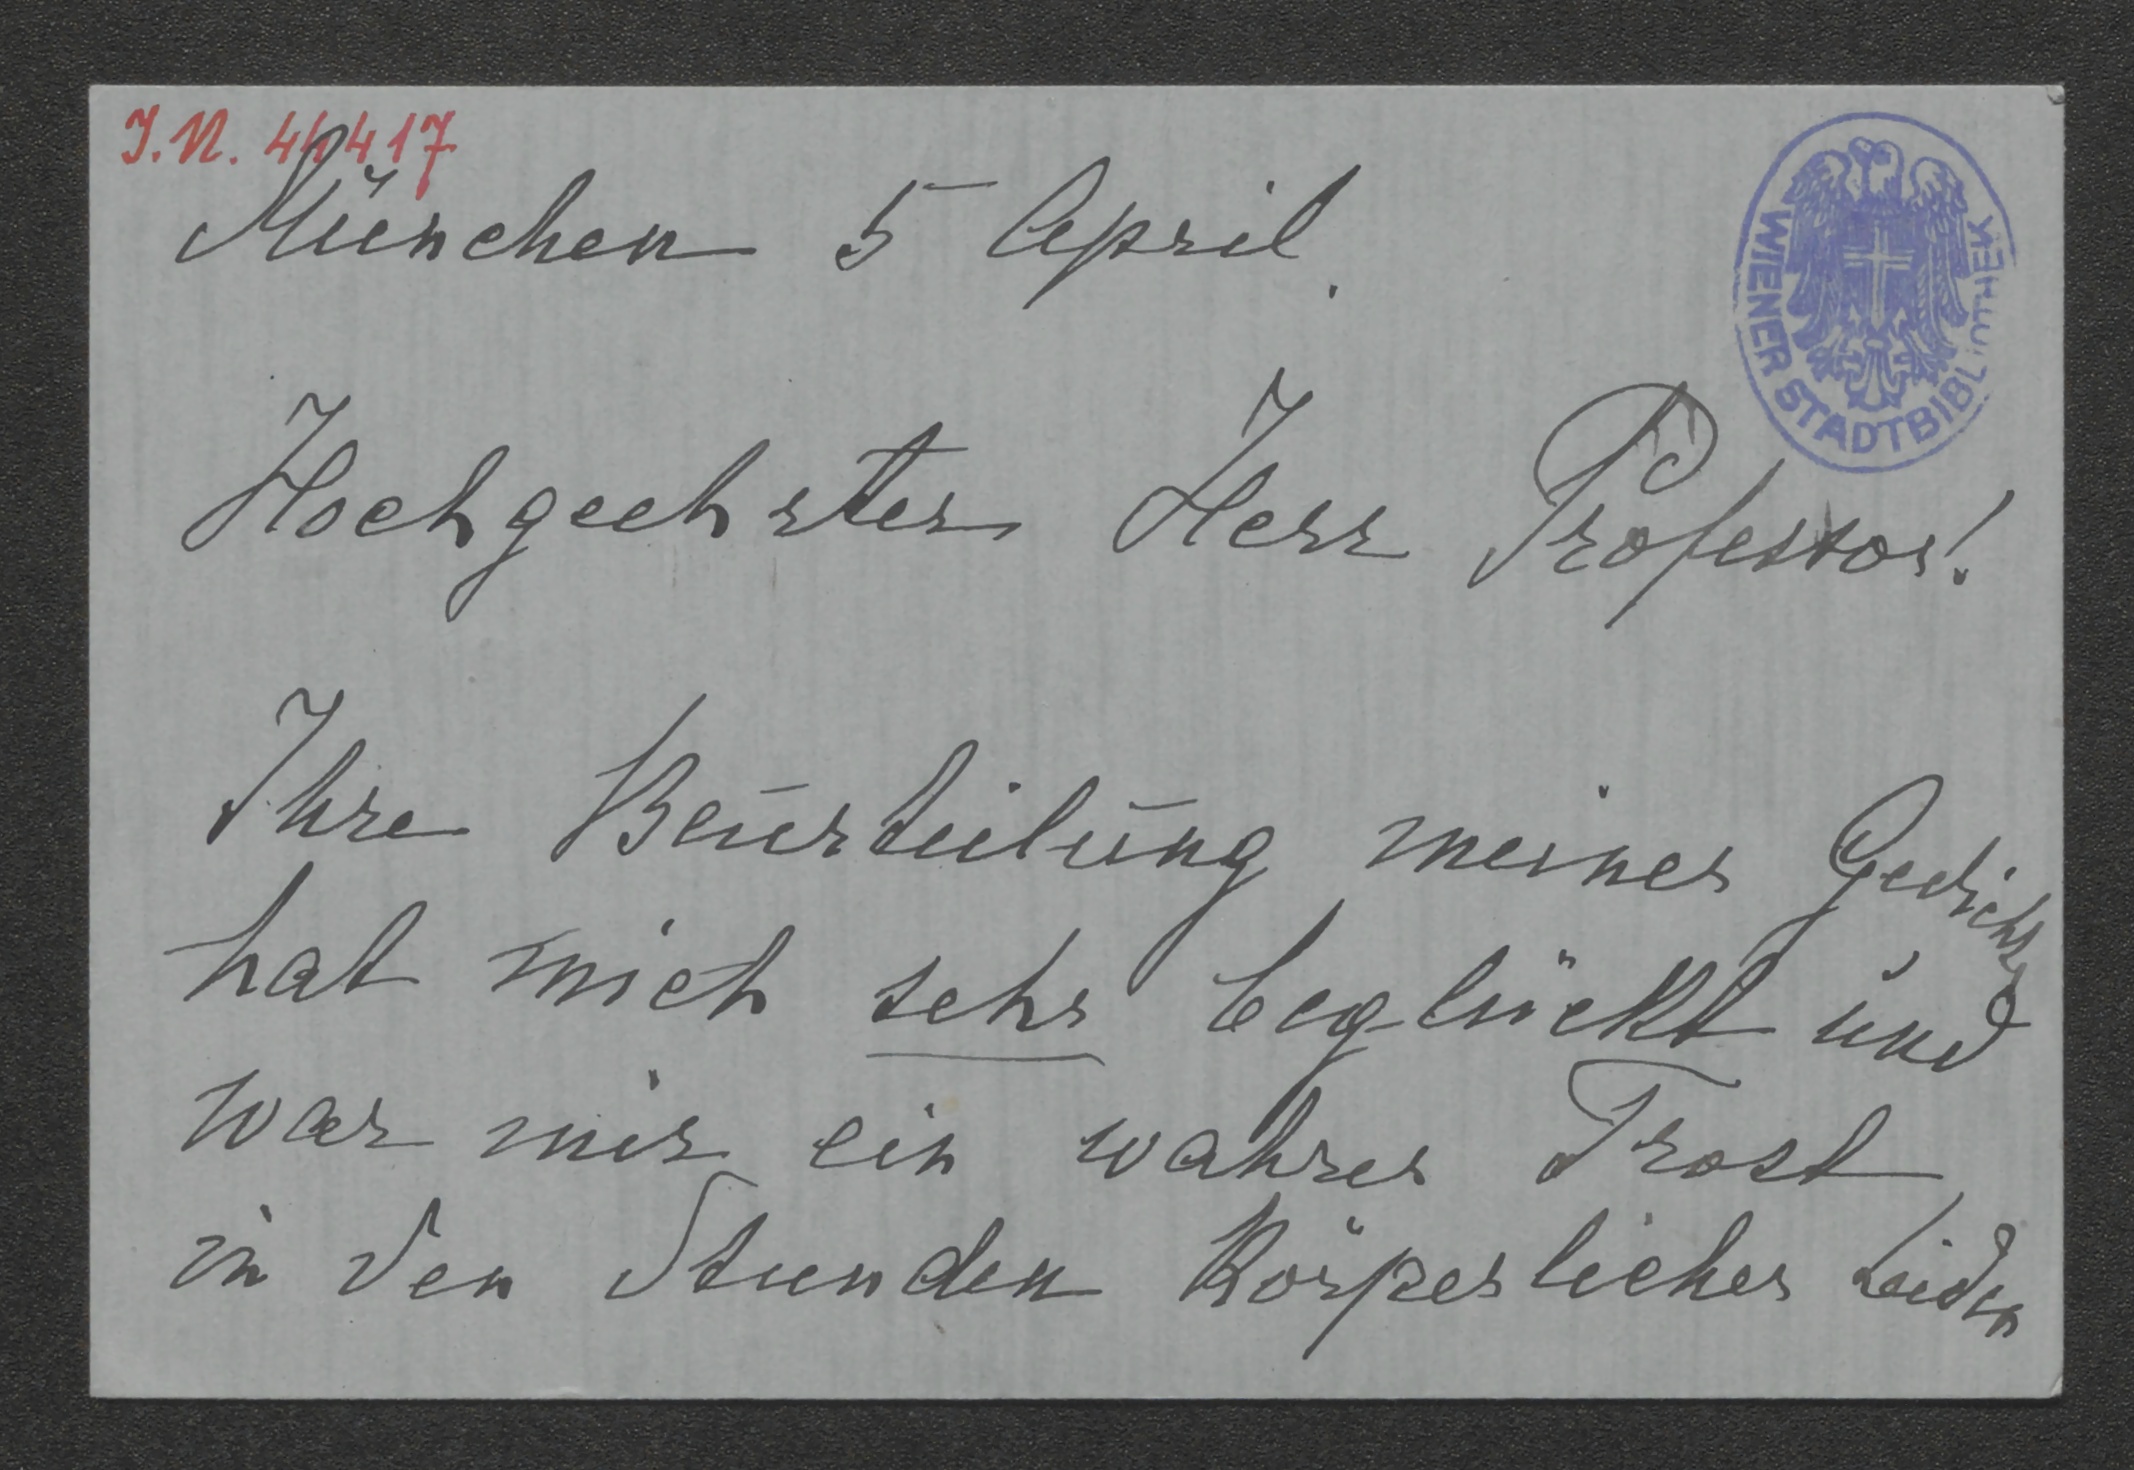 I.N. 44417
München 5 April.
WIENER STADTBIBLIOTHEK
Hochgeehrter Herr Professor!
Ihre Beurteilung meiner Gedichte
hat mich sehr beglückt und
war mir ein wahrer Trost
in den Stunden körperlicher Leiden